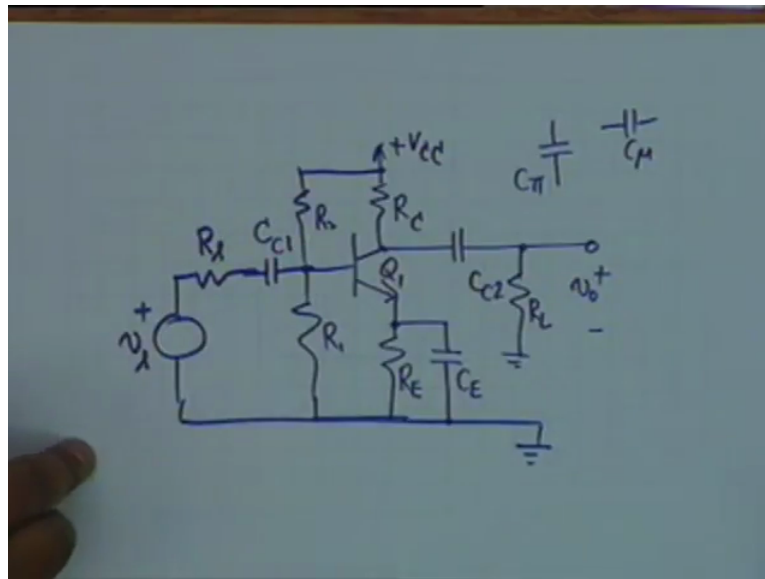 +VCC
Cπ
Cμ
R2
RC
Rs
CC1
Q1
CC2
vo
+
-
RL
+
vs
R1
RE
CE